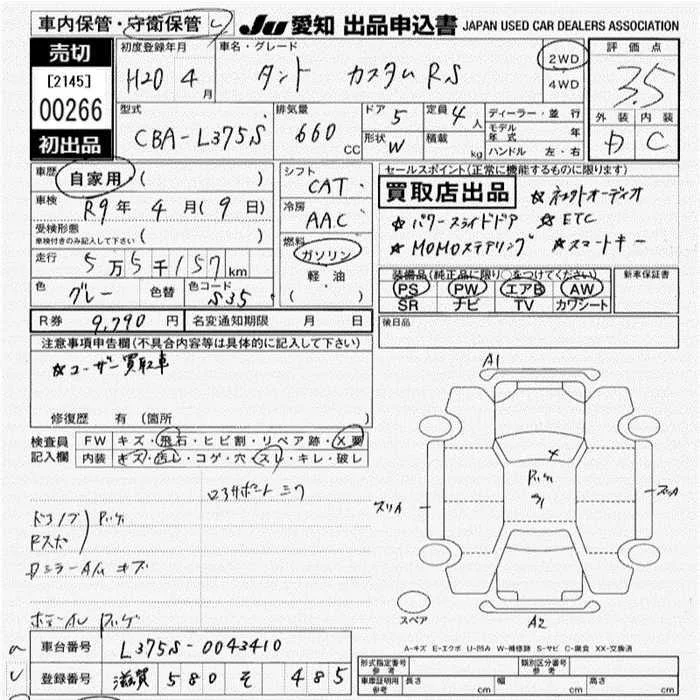 車内保管・守衛保管
JU 愛知 出品申込書 JAPAN USED CAR DEALERS ASSOCIATION
売切
[2145]
00266
初出品
初度登録年月
H20 4月
車名・グレード
タント カスタムRS
2WD
4WD
評価点
3.5
外装 内装
D C
型式
CBA-L375S
排気量
660 CC
ドア 5
形状 W
定員 4人
積載 kg
ディーラー・並行
モデル年式 年
ハンドル 左・右
車歴 自家用 ( )
車検 R9年 4月(9日)
受検形態 ( )
車検付きのみ記入して下さい
走行 5万5千157km
色 グレー 色替 色コード S35
シフト CAT
冷房 AAC
燃料
ガソリン
軽・油
( ・ )
セールスポイント(正常に機能するものに限ります)
買取店出品 ☆コネクトオーディオ
☆パワースライドドア ☆ETC
☆MOMOステアリング ☆スマートキー
装備品(純正品に限り○をつけてください) 新車保証書
PS PW エアB AW
SR ナビ TV カワシート
後日品
R券 9,790円 名変通知期限 月 日
注意事項申告欄(不具合内容等は具体的に記入して下さい)
☆ユーザー買取車
修復歴 有 (箇所 )
検査員記入欄
FW キズ・飛石・ヒビ割・リペア跡・X要
内装 キズ・汚レ・コゲ・穴・スレ・キレ・破レ
A1
A2
スペア
A-キズ E-エクボ U-凹み W-補修跡 S-サビ C-腐食 XX-交換済
車台番号 L375S-0043410
登録番号 滋賀 580 そ 485
形式指定番号 参考
類別区分番号 参考
車庫証明用 参考 長さ cm 幅 cm 高さ cm